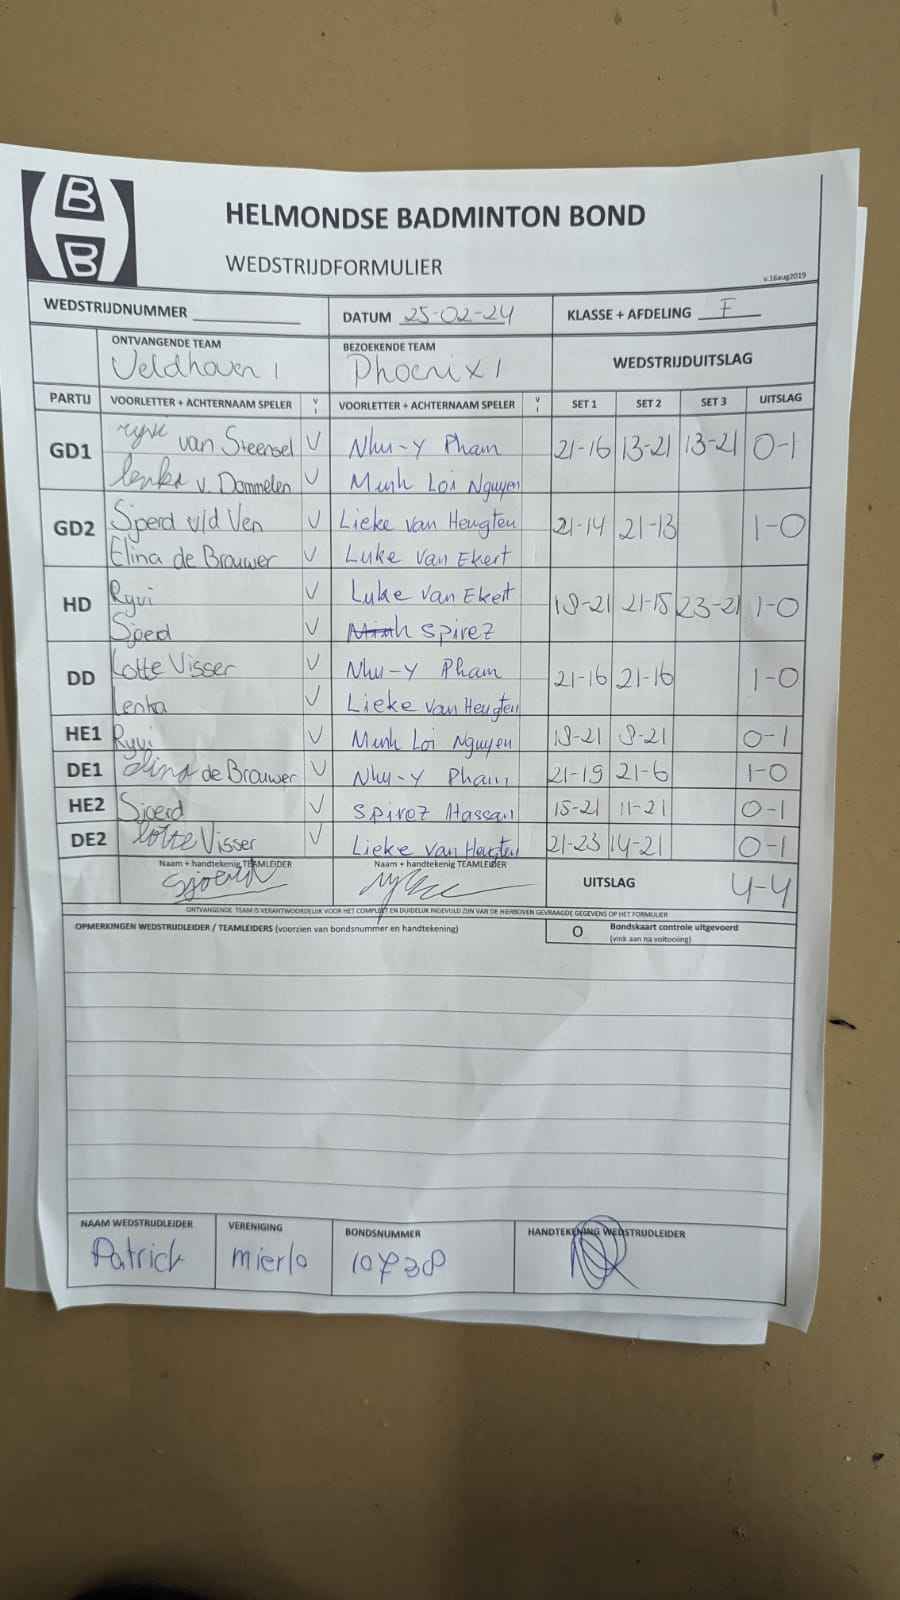 B
B
HELMONDSE BADMINTON BOND
WEDSTRIJDFORMULIER
v.16aug2019
WEDSTRIJDNUMMER DATUM 25-02-24 KLASSE + AFDELING F
ONTVANGENDE TEAM BEZOEKENDE TEAM WEDSTRIJDUITSLAG
Veldhoven 1 Phoenix 1
PARTIJ VOORLETTER + ACHTERNAAM SPELER V VOORLETTER + ACHTERNAAM SPELER V SET 1 SET 2 SET 3 UITSLAG
GD1 van Steensel V Nhu-Y Pham 21-16 13-21 13-21 0-1
lenka v. Dommelen V Minh Loi Nguyen
GD2 Sjoerd v/d Ven V Lieke van Heugten 21-14 21-13 1-0
Elina de Brouwer V Luke van Ekert
HD Ryvi V Luke van Ekert 19-21 21-18 23-21 1-0
Sjoerd V Minh Spiroz
DD Lotte Visser V Nhu-Y Pham 21-16 21-16 1-0
Lenka V Lieke van Heugten
HE1 Ryvi V Minh Loi Nguyen 19-21 9-21 0-1
DE1 Elina de Brouwer V Nhu-Y Pham 21-19 21-6 1-0
HE2 Sjoerd V Spiroz Hassan 15-21 11-21 0-1
DE2 lotte Visser V Lieke van Heugten 21-23 14-21 0-1
Naam + handtekenig TEAMLEIDER Naam + handtekenig TEAMLEIDER
Sjoerd UITSLAG 4-4
ONTVANGENDE TEAM IS VERANTWOORDELIJK VOOR HET COMPLEET EN DUIDELIJK INGEVULD ZIJN VAN DE HIERBOVEN GEVRAAGDE GEGEVENS OP HET FORMULIER
OPMERKINGEN WEDSTRIJDLEIDER / TEAMLEIDERS (voorzien van bondsnummer en handtekening) O Bondskaart controle uitgevoerd
(vink aan na voltooiing)
NAAM WEDSTRIJDLEIDER VERENIGING BONDSNUMMER HANDTEKENING WEDSTRIJDLEIDER
Patrick mierlo 10738